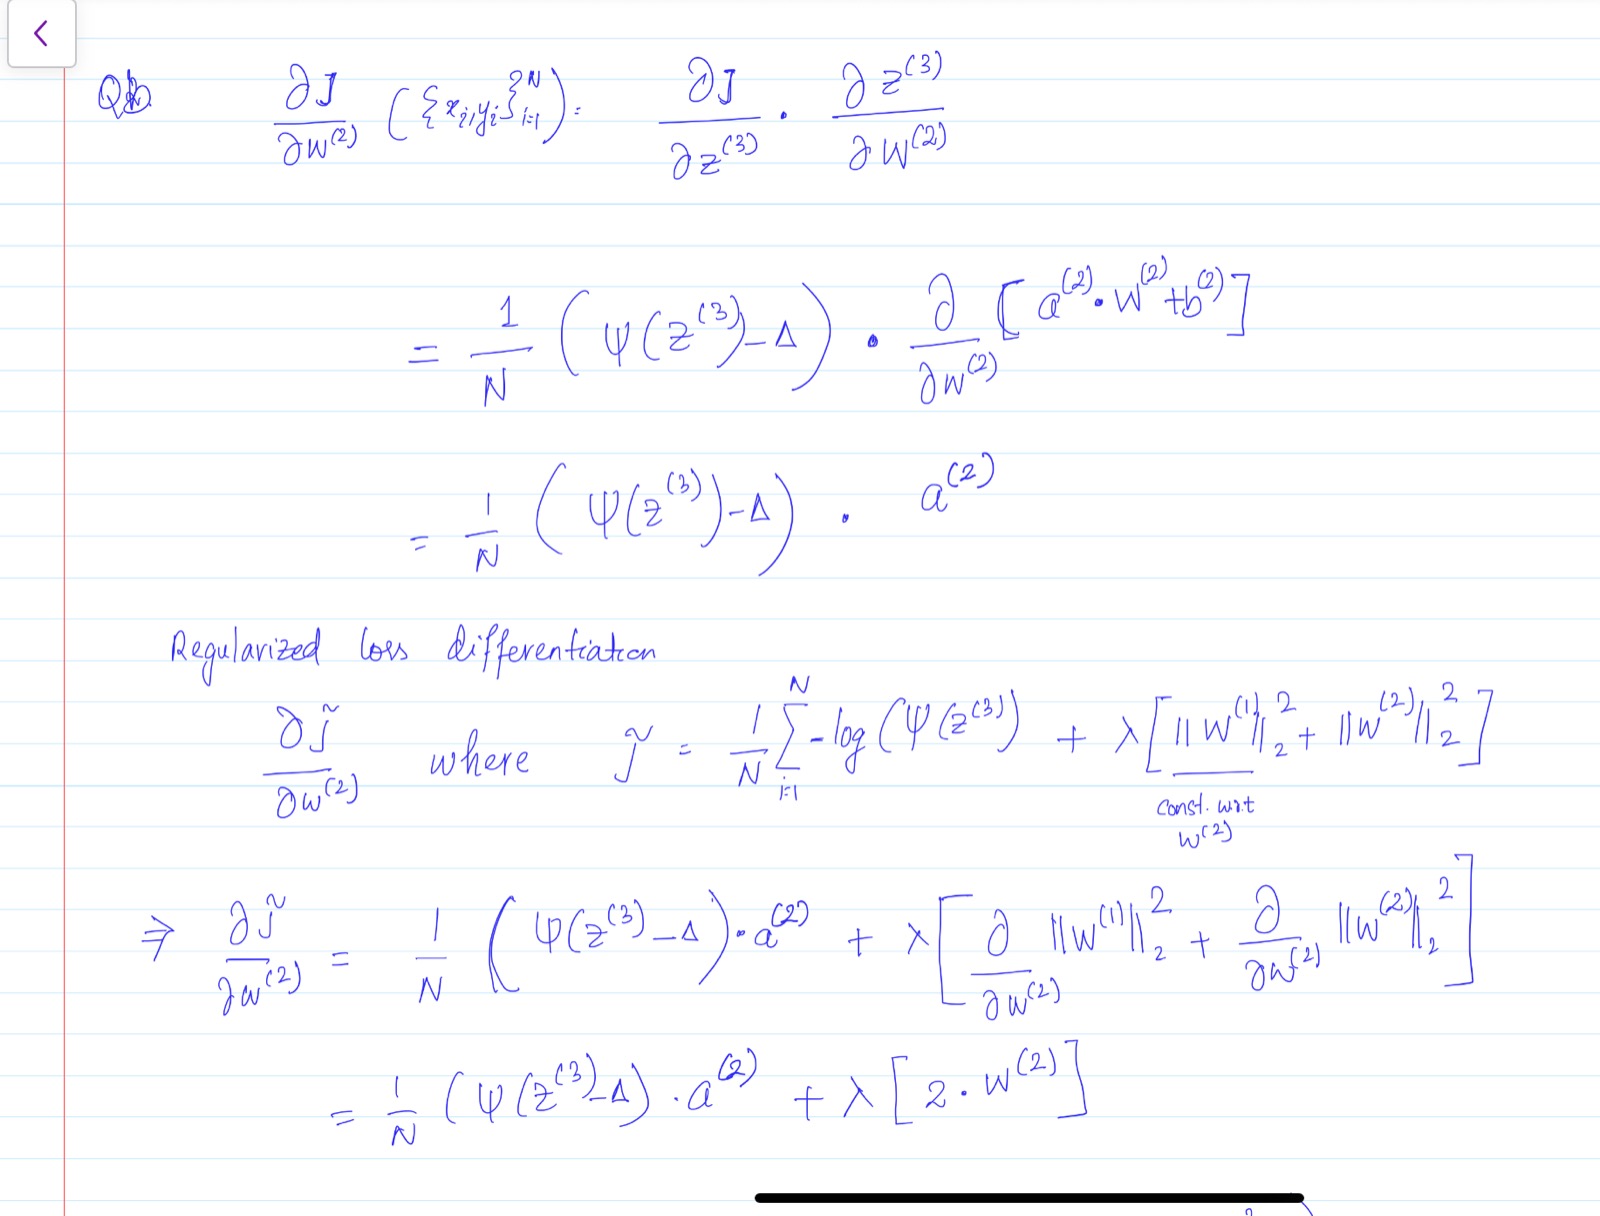 Qb. ∂J/∂W^(2) ({x_i, y_i}^N_{i=1}) = ∂J/∂z^(3) · ∂z^(3)/∂W^(2)
= 1/N (ψ(z^(3)) - Δ) · ∂/∂W^(2) [a^(2) · W^(2) + b^(2)]
= 1/N (ψ(z^(3)) - Δ) · a^(2)
Regularized loss differentiation
∂J̃/∂W^(2) where J̃ = 1/N Σ^N_{i=1} -log(ψ(z^(3))) + λ[||W^(1)||_2^2 + ||W^(2)||_2^2]
const. wrt
W^(2)
⇒ ∂J̃/∂W^(2) = 1/N (ψ(z^(3) - Δ) · a^(2) + λ[∂/∂W^(2) ||W^(1)||_2^2 + ∂/∂W^(2) ||W^(2)||_2^2]
= 1/N (ψ(z^(3) - Δ) · a^(2) + λ[2 · W^(2)]